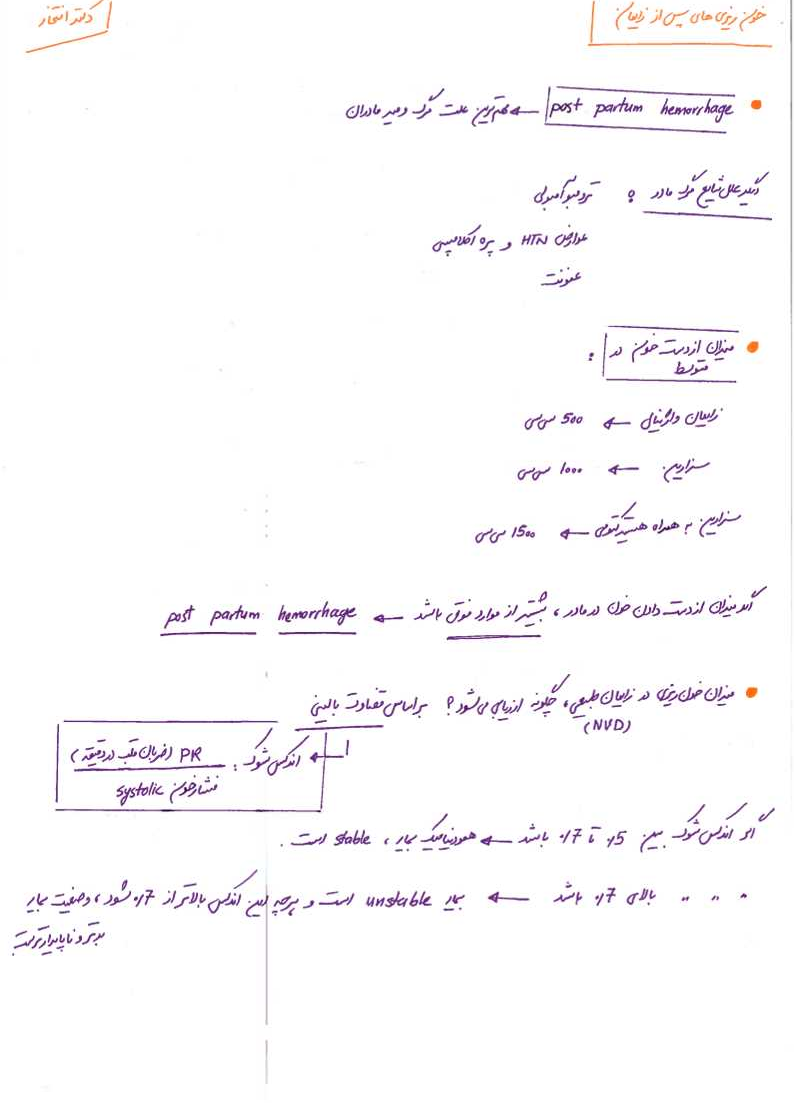 خون ریزی های پس از زایمان
دکتر افتخار
post partum hemorrhage ← مهم ترین علت مرگ و میر مادران
دیگر علل شایع مرگ مادر : ترومبوآمبولی
عوارض HTN و پره اکلامپسی
عفونت
میزان از دست خون در :
متوسط
زایمان واژینال ← 500 سی سی
سزارین ← 1000 سی سی
سزارین به همراه هیسترکتومی ← 1500 سی سی
اگر میزان از دست دادن خون در مادر، بیشتر از موارد فوق باشد ← post partum hemorrhage
میزان خون ریزی در زایمان طبیعی، چگونه ارزیابی می شود؟ براساس قضاوت بالینی
(NVD)
اندکس شوک : PR (ضربان قلب در دقیقه)
فشارخون systolic
اگر اندکس شوک بین ۰/۵ تا ۰/۷ باشد ← همودینامیک بیمار، stable است.
" " " بالای ۰/۷ باشد ← بیمار unstable است و هرچه این اندکس بالاتر از ۰/۷ شود، وضعیت بیمار
بدتر و ناپایدارتر است